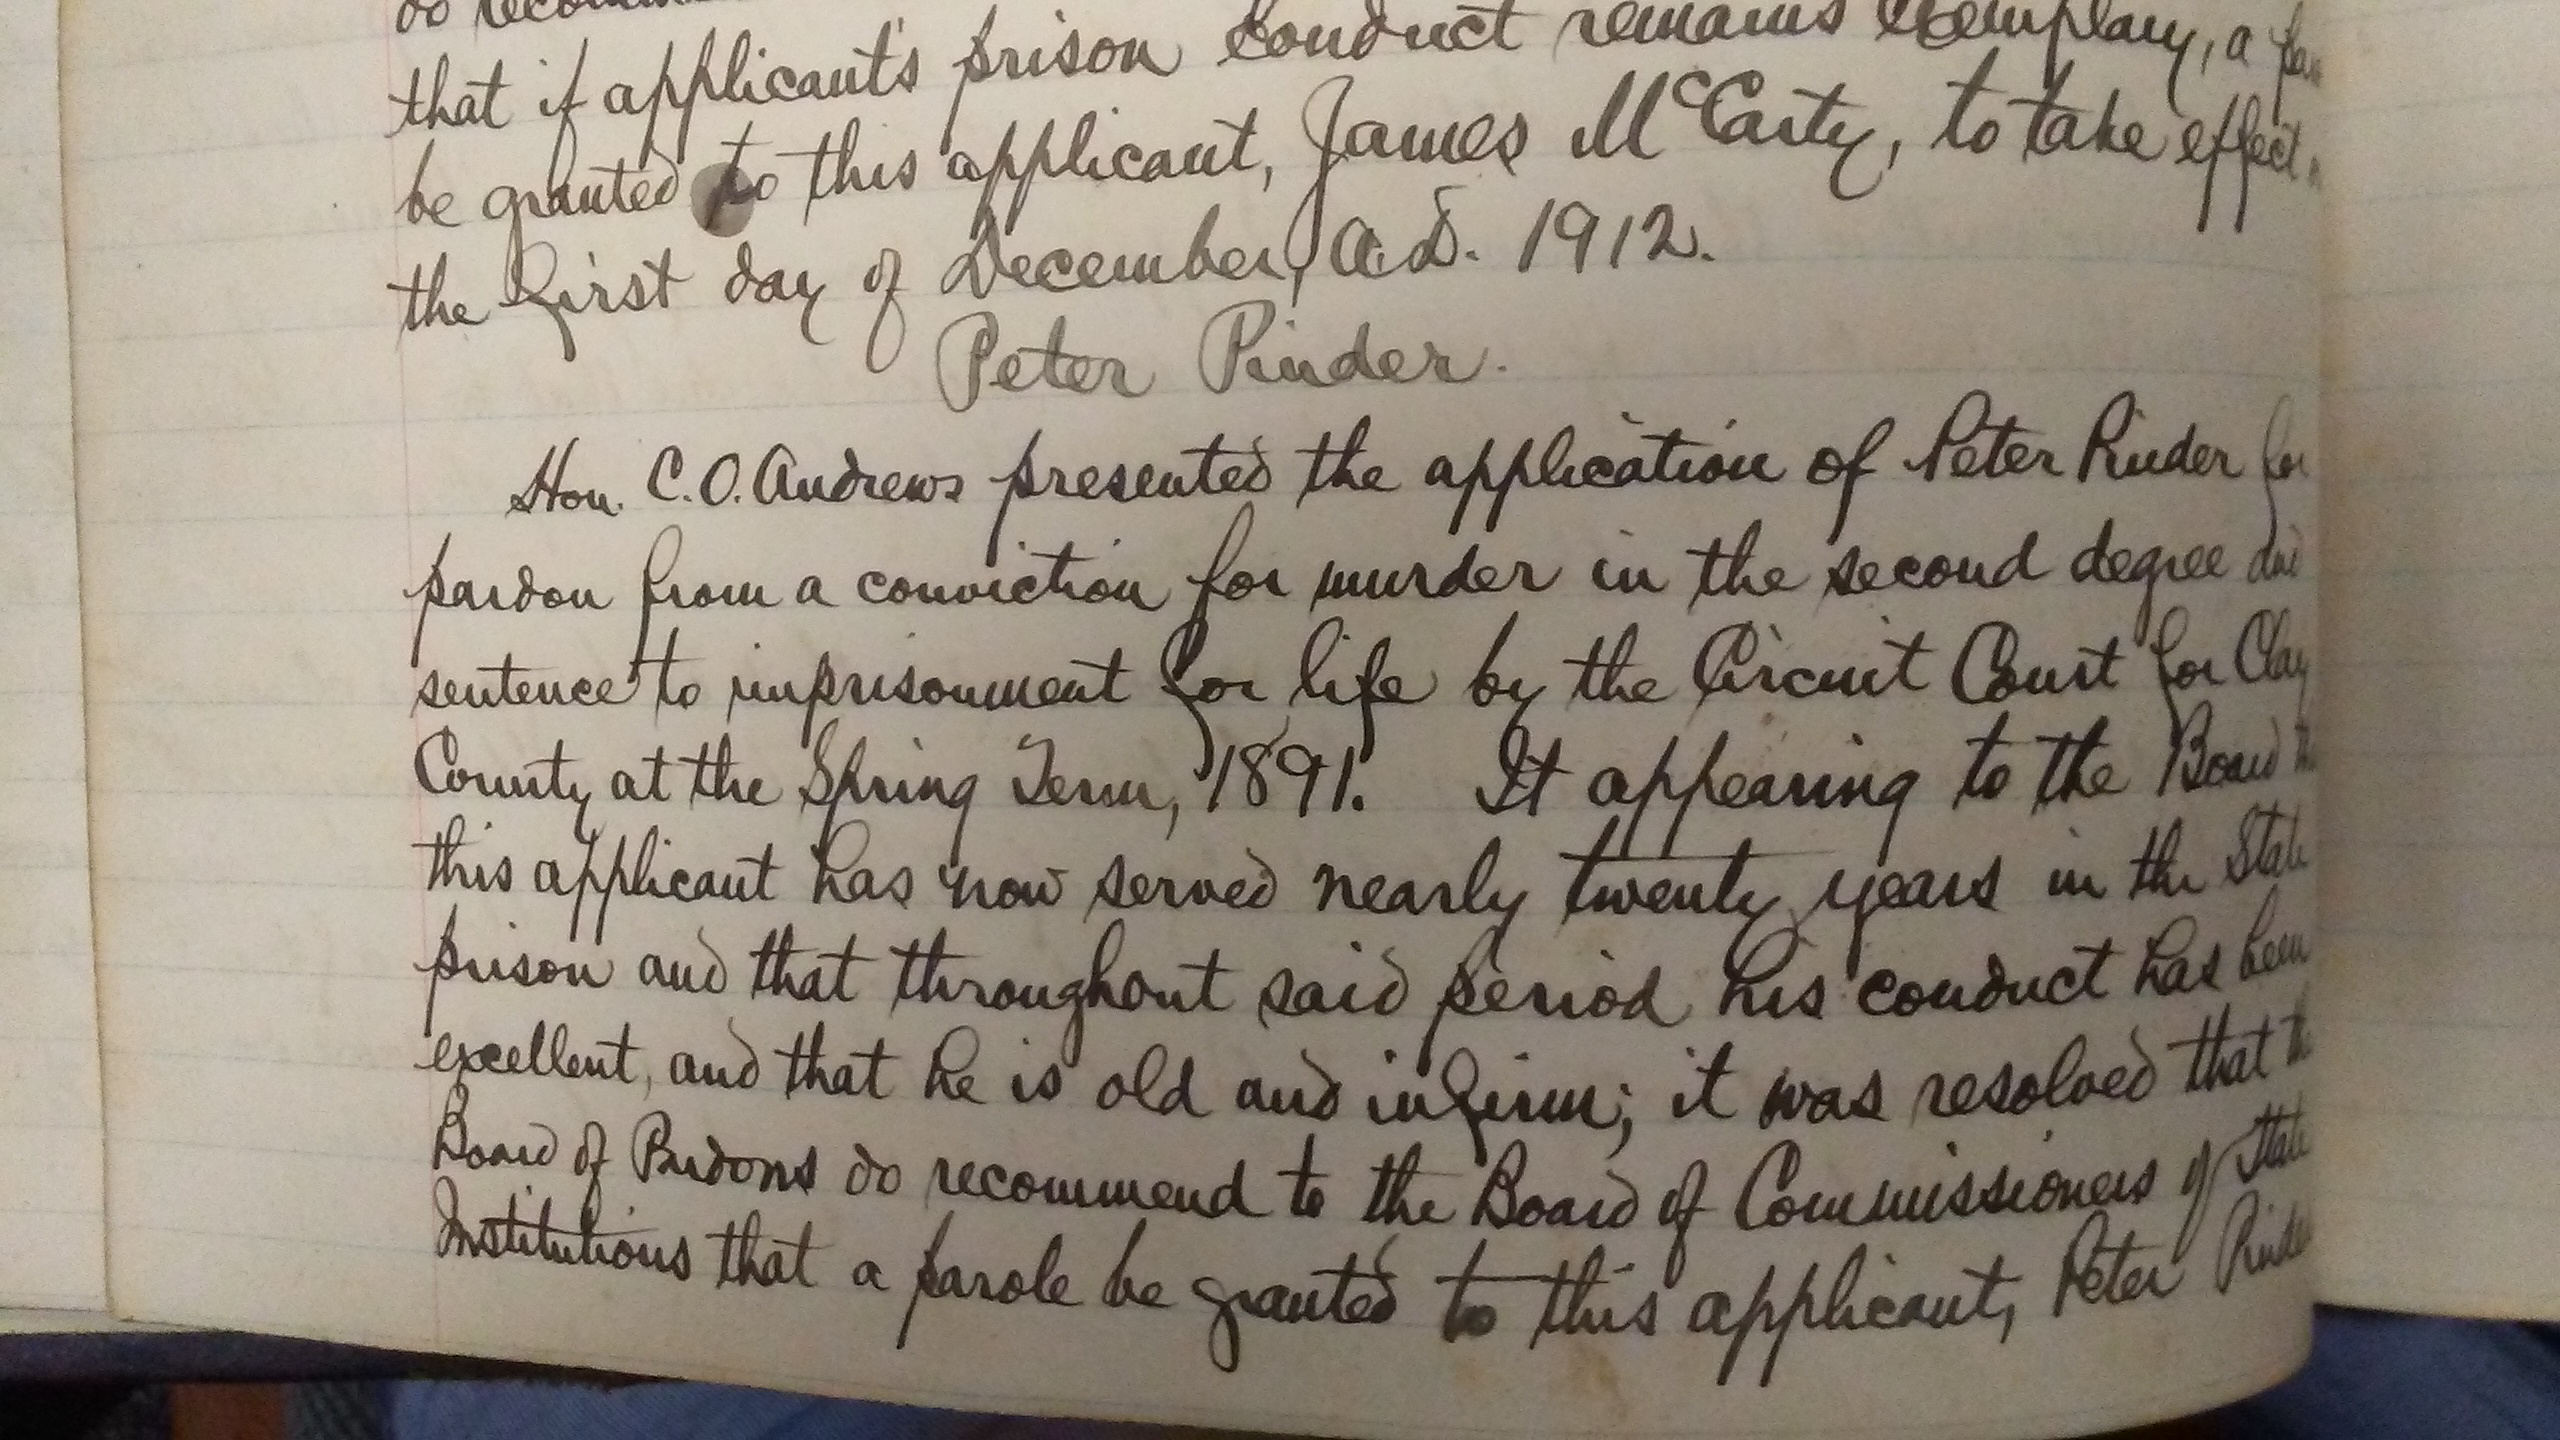 do recommend
that if applicant's prison conduct remains exemplary, a
be granted to this applicant, James McCarty, to take effect
the first day of December, A.D. 1912.
Peter Pinder.
Hon. C.O. Andrews presented the application of Peter Pinder for
pardon from a conviction for murder in the second degree and
sentence to imprisonment for life by the Circuit Court for Clay
County at the Spring Term, 1891. It appearing to the Board
this applicant has now served nearly twenty years in the State
prison and that throughout said period his conduct has been
excellent, and that he is old and infirm; it was resolved that
Board of Pardons do recommend to the Board of Commissioners of State
Institutions that a parole be granted to this applicant, Peter Pinder